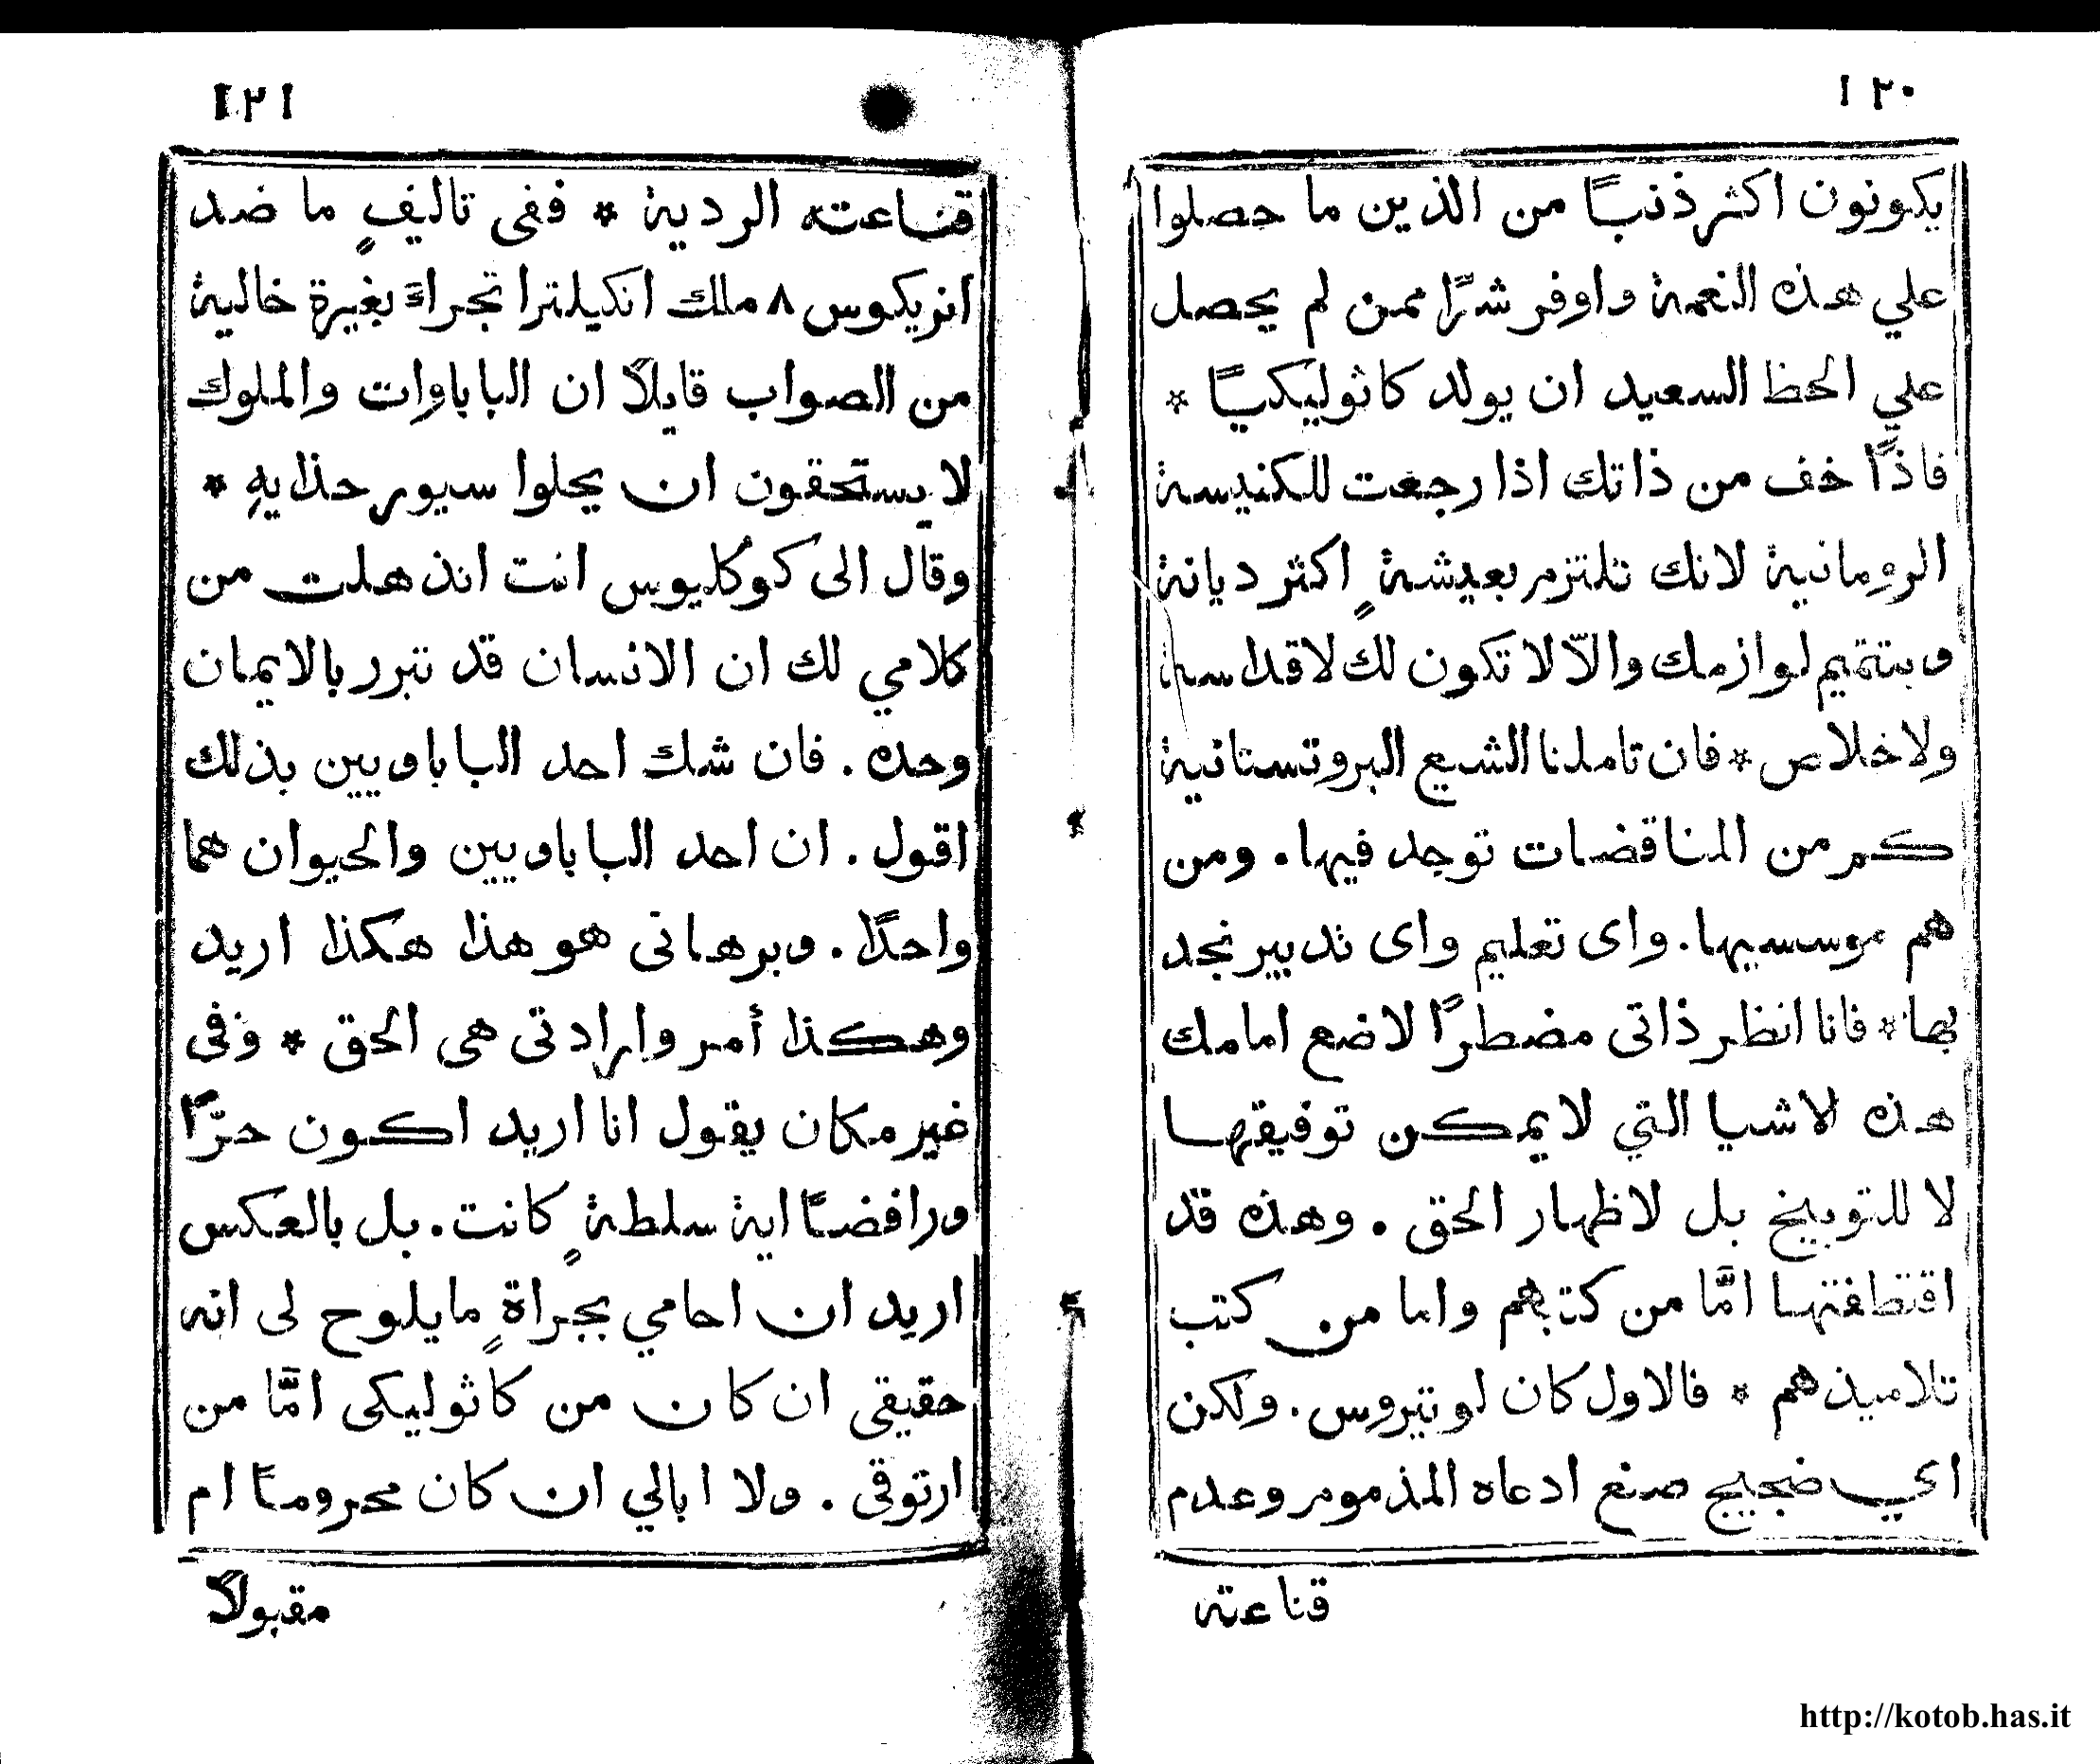 ١٢٠
يكونون اكثر ذنبًا من الذين ما حصلوا
علي هذه النعمة واوفر شرًا ممن لم يحصل
علي الحظ السعيد ان يولد كاثوليكيًا *
فاذًا خف من ذاتك اذا رجعت للكنيسة
الرومانية لانك تلتزم بعيشةٍ اكثر ديانة
وبتتميم لوازمك والاّ لا تكون لك لا قداسة
ولا خلاص * فان تاملنا الشيع البروتستانية
كم من المناقضات توجد فيها. ومن
هم موسسيها. واى تعليم واى تدبير نجد
بها * فانا انظر ذاتى مضطرًا لاضع امامك
هذه لاشيا التي لا يمكن توفيقها
لا للتوبيخ بل لاظهار الحق. وهذه قد
اقتطفتها امّا من كتبهم واما من كتب
تلاميذهم * فالاول كان لوتيروس. ولكن
اي ضجيج صنع ادعاه المذموم وعدم
قناعته
١٢١
قناعته الردية * ففى تاليفٍ ما ضد
انريكوس ٨ ملك انكيلترا تجراءَ بغيرة خالية
من الصواب قايلاً ان الباباوات والملوك
لا يستحقون ان يحلوا سيور حذايهِ *
وقال الى كوكليوس انت انذهلت من
كلامي لك ان الانسان قد تبرر بالايمان
وحده. فان شك احد الباباويين بذلك
اقول. ان احد الباباويين والحيوان هما
واحدًا. وبرهانى هو هذا هكذا اريد
وهكذا أمر وارادتى هى الحق * وفى
غير مكان يقول انا اريد اكون حرًّا
ورافضًا اية سلطةٍ كانت. بل بالعكس
اريد ان احامي بجراةٍ ما يلوح لى انه
حقيقى ان كان من كاثوليكى امَّا من
ارتوقى. ولا ابالي ان كان محرومًا ام
مقبولاً
http://kotob.has.it